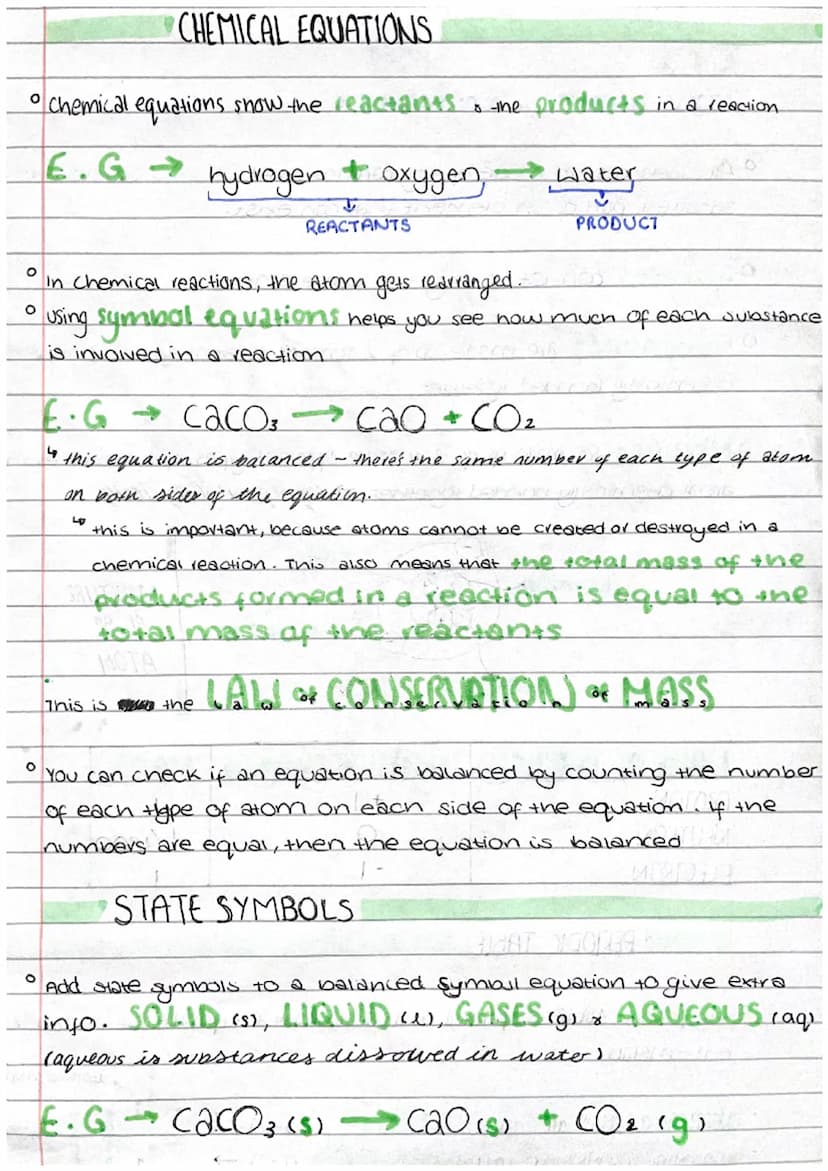 CHEMICAL EQUATIONS
° Chemical equations show the reactants & the products in a reaction
E.G → hydrogen + oxygen → water
REACTANTS PRODUCT
° In chemical reactions, the atom gets rearranged.
° Using symbol equations helps you see how much of each substance
is involved in a reaction
E.G → CaCO₃ → CaO + CO₂
↳ this equation is balanced - there's the same number of each type of atom
on both sides of the equation.
↳ this is important, because atoms cannot be created or destroyed in a
chemical reaction. This also means that the total mass of the
products formed in a reaction is equal to the
total mass of the reactants
This is the LAW OF CONSERVATION OF MASS
° You can check if an equation is balanced by counting the number
of each type of atom on each side of the equation. If the
numbers are equal, then the equation is balanced
STATE SYMBOLS
° Add state symbols to a balanced symbol equation to give extra
info. SOLID (s), LIQUID (l), GASES (g) & AQUEOUS (aq)
(aqueous is substances dissolved in water)
E.G → CaCO₃ (s) → CaO (s) + CO₂ (g)